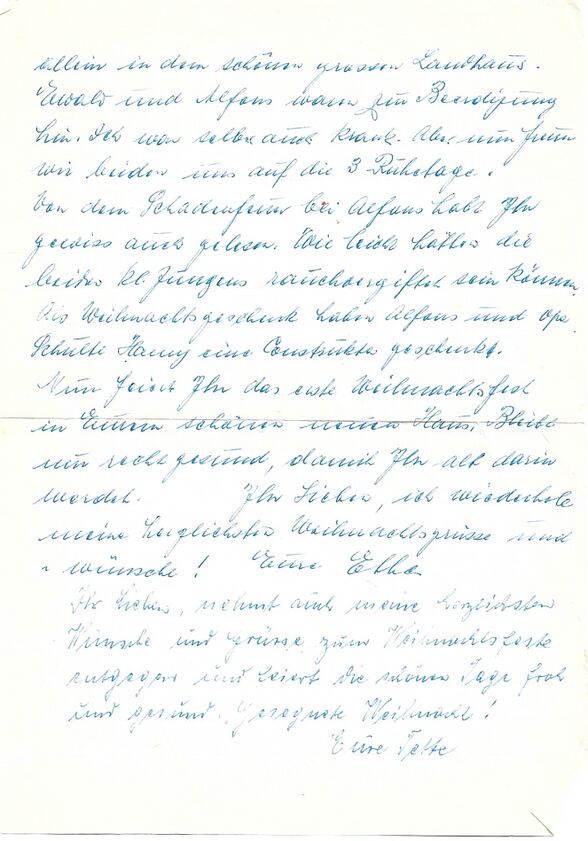 allein in dem schönen grossen Landhaus.
Ewald und Alfons waren zur Beerdigung
hin. Ich war selbst auch krank. Aber nun freuen
wir beiden uns auf die 3 Ruhetage.
Von dem Schadenfeuer bei Alfons habt Ihr
gewiss auch gelesen. Wie leicht hätten die
beiden kl. Jungens rauchvergiftet sein können.
Als Weihnachtsgeschenk haben Alfons und Opa
Schulte Hanny eine geschenkt.
Nun feiert Ihr das erste Weihnachtsfest
in Eurem schönen neuen Haus. Bleibt
nur recht gesund, damit Ihr alt darin
werdet. Ihr Lieben, ich wiederhole
meine herzlichsten Weihnachtsgrüsse und
- wünsche! Eure
Ihr Lieben, nehmt auch meine herzlichsten
Wünsche und Grüsse zum Weihnachtsfeste
entgegen und feiert die schönen Tage froh
und gesund. Gesegnete Weihnacht!
Eure